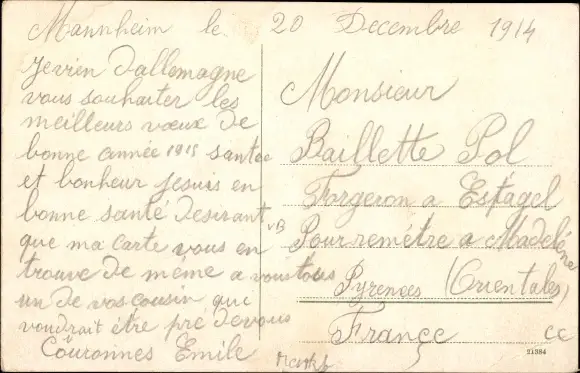 Mannheim le 20 Decembre 1914
Jevien Dallemagne
vous souhaiter les
meilleurs vœux de
bonne année 1915 santée
et bonheur Jesuis en
bonne santé Desirant
que ma carte vous en
trouve de même a vous tous
un de vos cousin que
voudrait être pré de vous
Couronnes Emile
Monsieur
Baillette Pol
Forgeron a Estagel
Pour remétre a Madeléne
Pyrenées (Orientales)
France
CC
21384